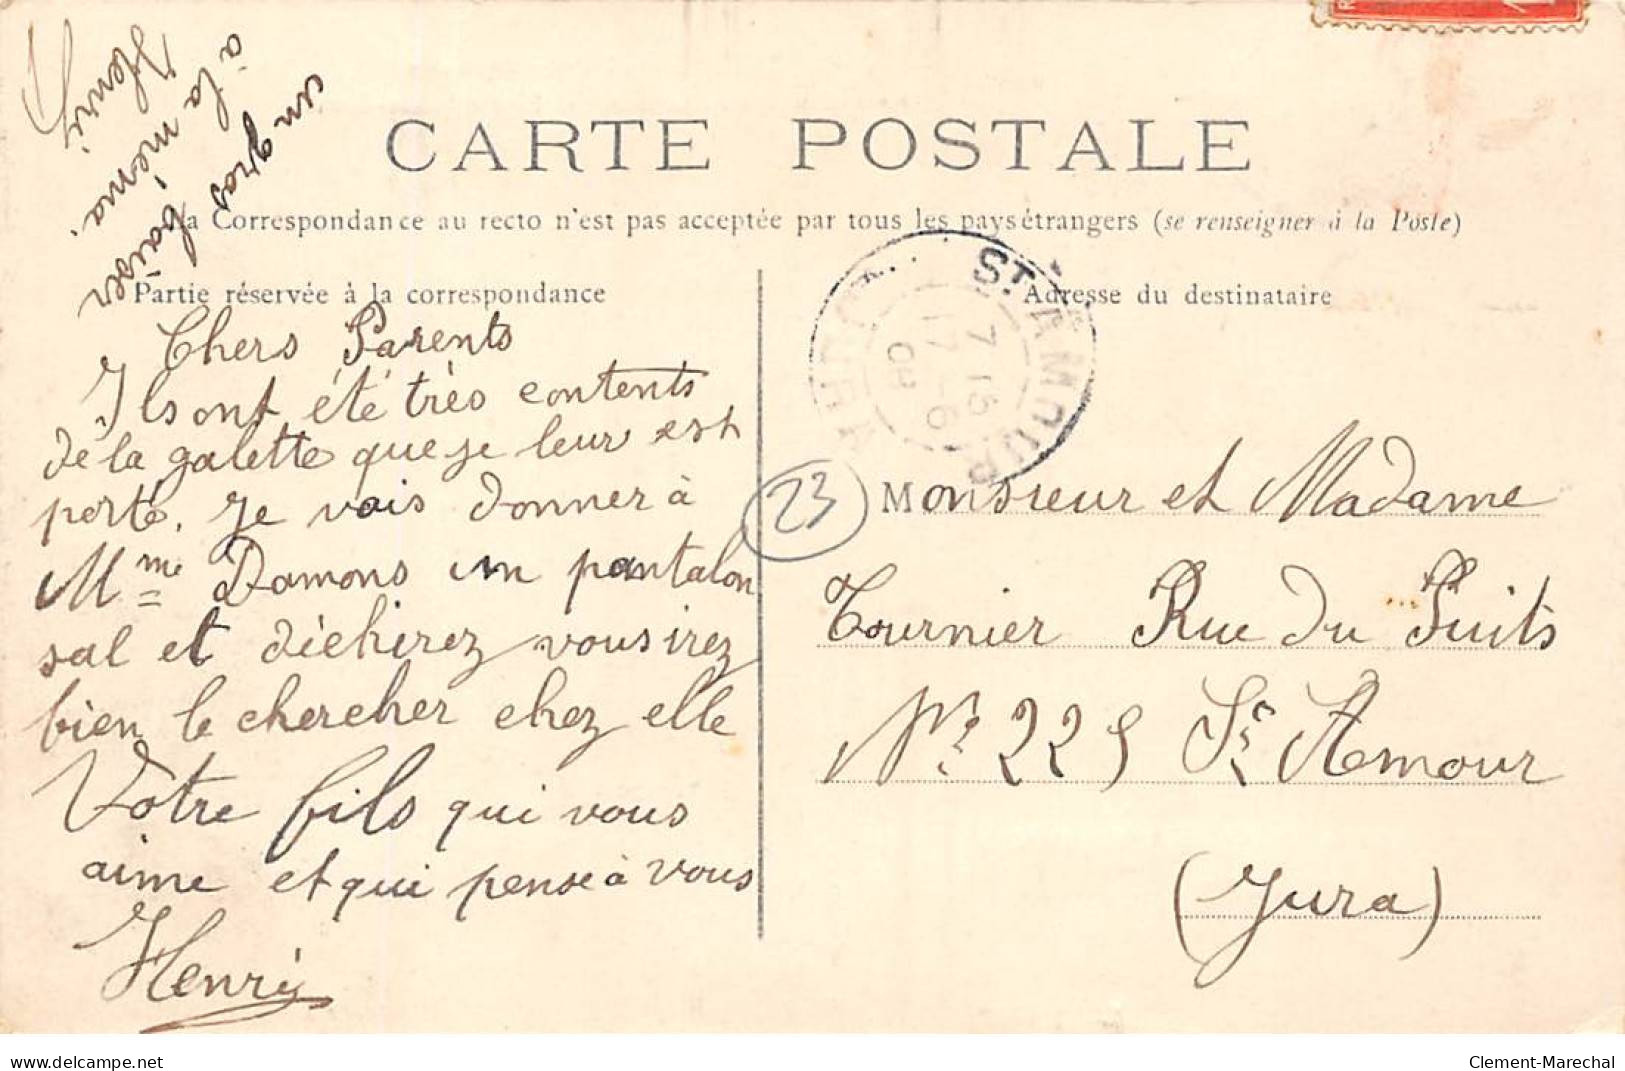 un gros baiser
à la mémé.
Henri
CARTE POSTALE
La Correspondance au recto n'est pas acceptée par tous les pays étrangers (se renseigner à la Poste)
Partie réservée à la correspondance
Chers Parents
Ils ont été très contents
de la galette que je leur est
porté. Je vais donner à
Mme Damons un pantalon
sal et déchirez vous irez
bien le chercher chez elle
Votre fils qui vous
aime et qui pense à vous
Henri
23
Adresse du destinataire
ST AMOUR
7 15
17 - 6
08
JURA
Monsieur et Madame
Tournier Rue du Puits
No 225 St Amour
(Jura)
www.delcampe.net
Clement-Marechal